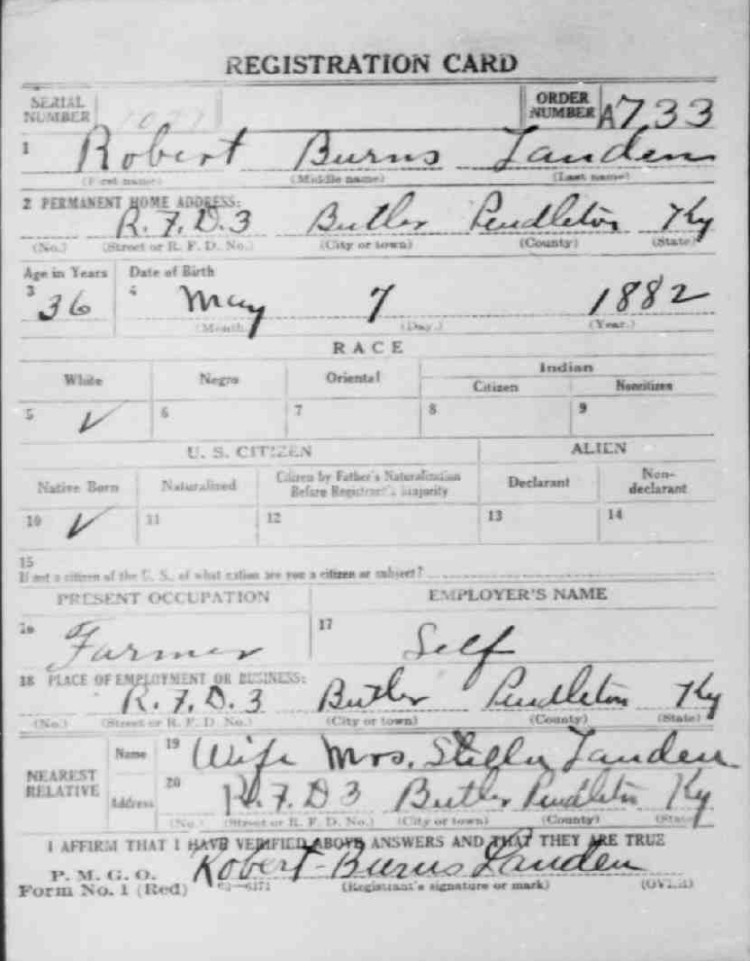 REGISTRATION CARD
SERIAL NUMBER ORDER NUMBER A733
1 Robert Burns Landen
(First name) (Middle name) (Last name)
2 PERMANENT HOME ADDRESS:
R.F.D.3 Butler Pendleton Ky
(No.) (Street or R. F. D. No.) (City or town) (County) (State)
Age in Years Date of Birth
3 36 4 May 7 1882
(Month.) (Day.) (Year.)
RACE
White Negro Oriental Indian
Citizen Noncitizen
5 ✓ 6 7 8 9
U. S. CITIZEN ALIEN
Native Born Naturalized Citizen by Father's Naturalization Before Registrant's Majority Declarant Non-declarant
10 ✓ 11 12 13 14
15
If not a citizen of the U. S., of what nation are you a citizen or subject?
PRESENT OCCUPATION EMPLOYER'S NAME
16 Farmer 17 Self
18 PLACE OF EMPLOYMENT OR BUSINESS:
R.F.D.3 Butler Pendleton Ky
(No.) (Street or R. F. D. No.) (City or town) (County) (State)
NEAREST RELATIVE
Name 19 Wife Mrs. Stella Landen
Address 20 R.F.D 3 Butler Pendleton Ky
(No.) (Street or R. F. D. No.) (City or town) (County) (State)
I AFFIRM THAT I HAVE VERIFIED ABOVE ANSWERS AND THAT THEY ARE TRUE
P. M. G. O.
Form No. 1 (Red) Robert Burns Landen
(Registrant's signature or mark) (OVER)